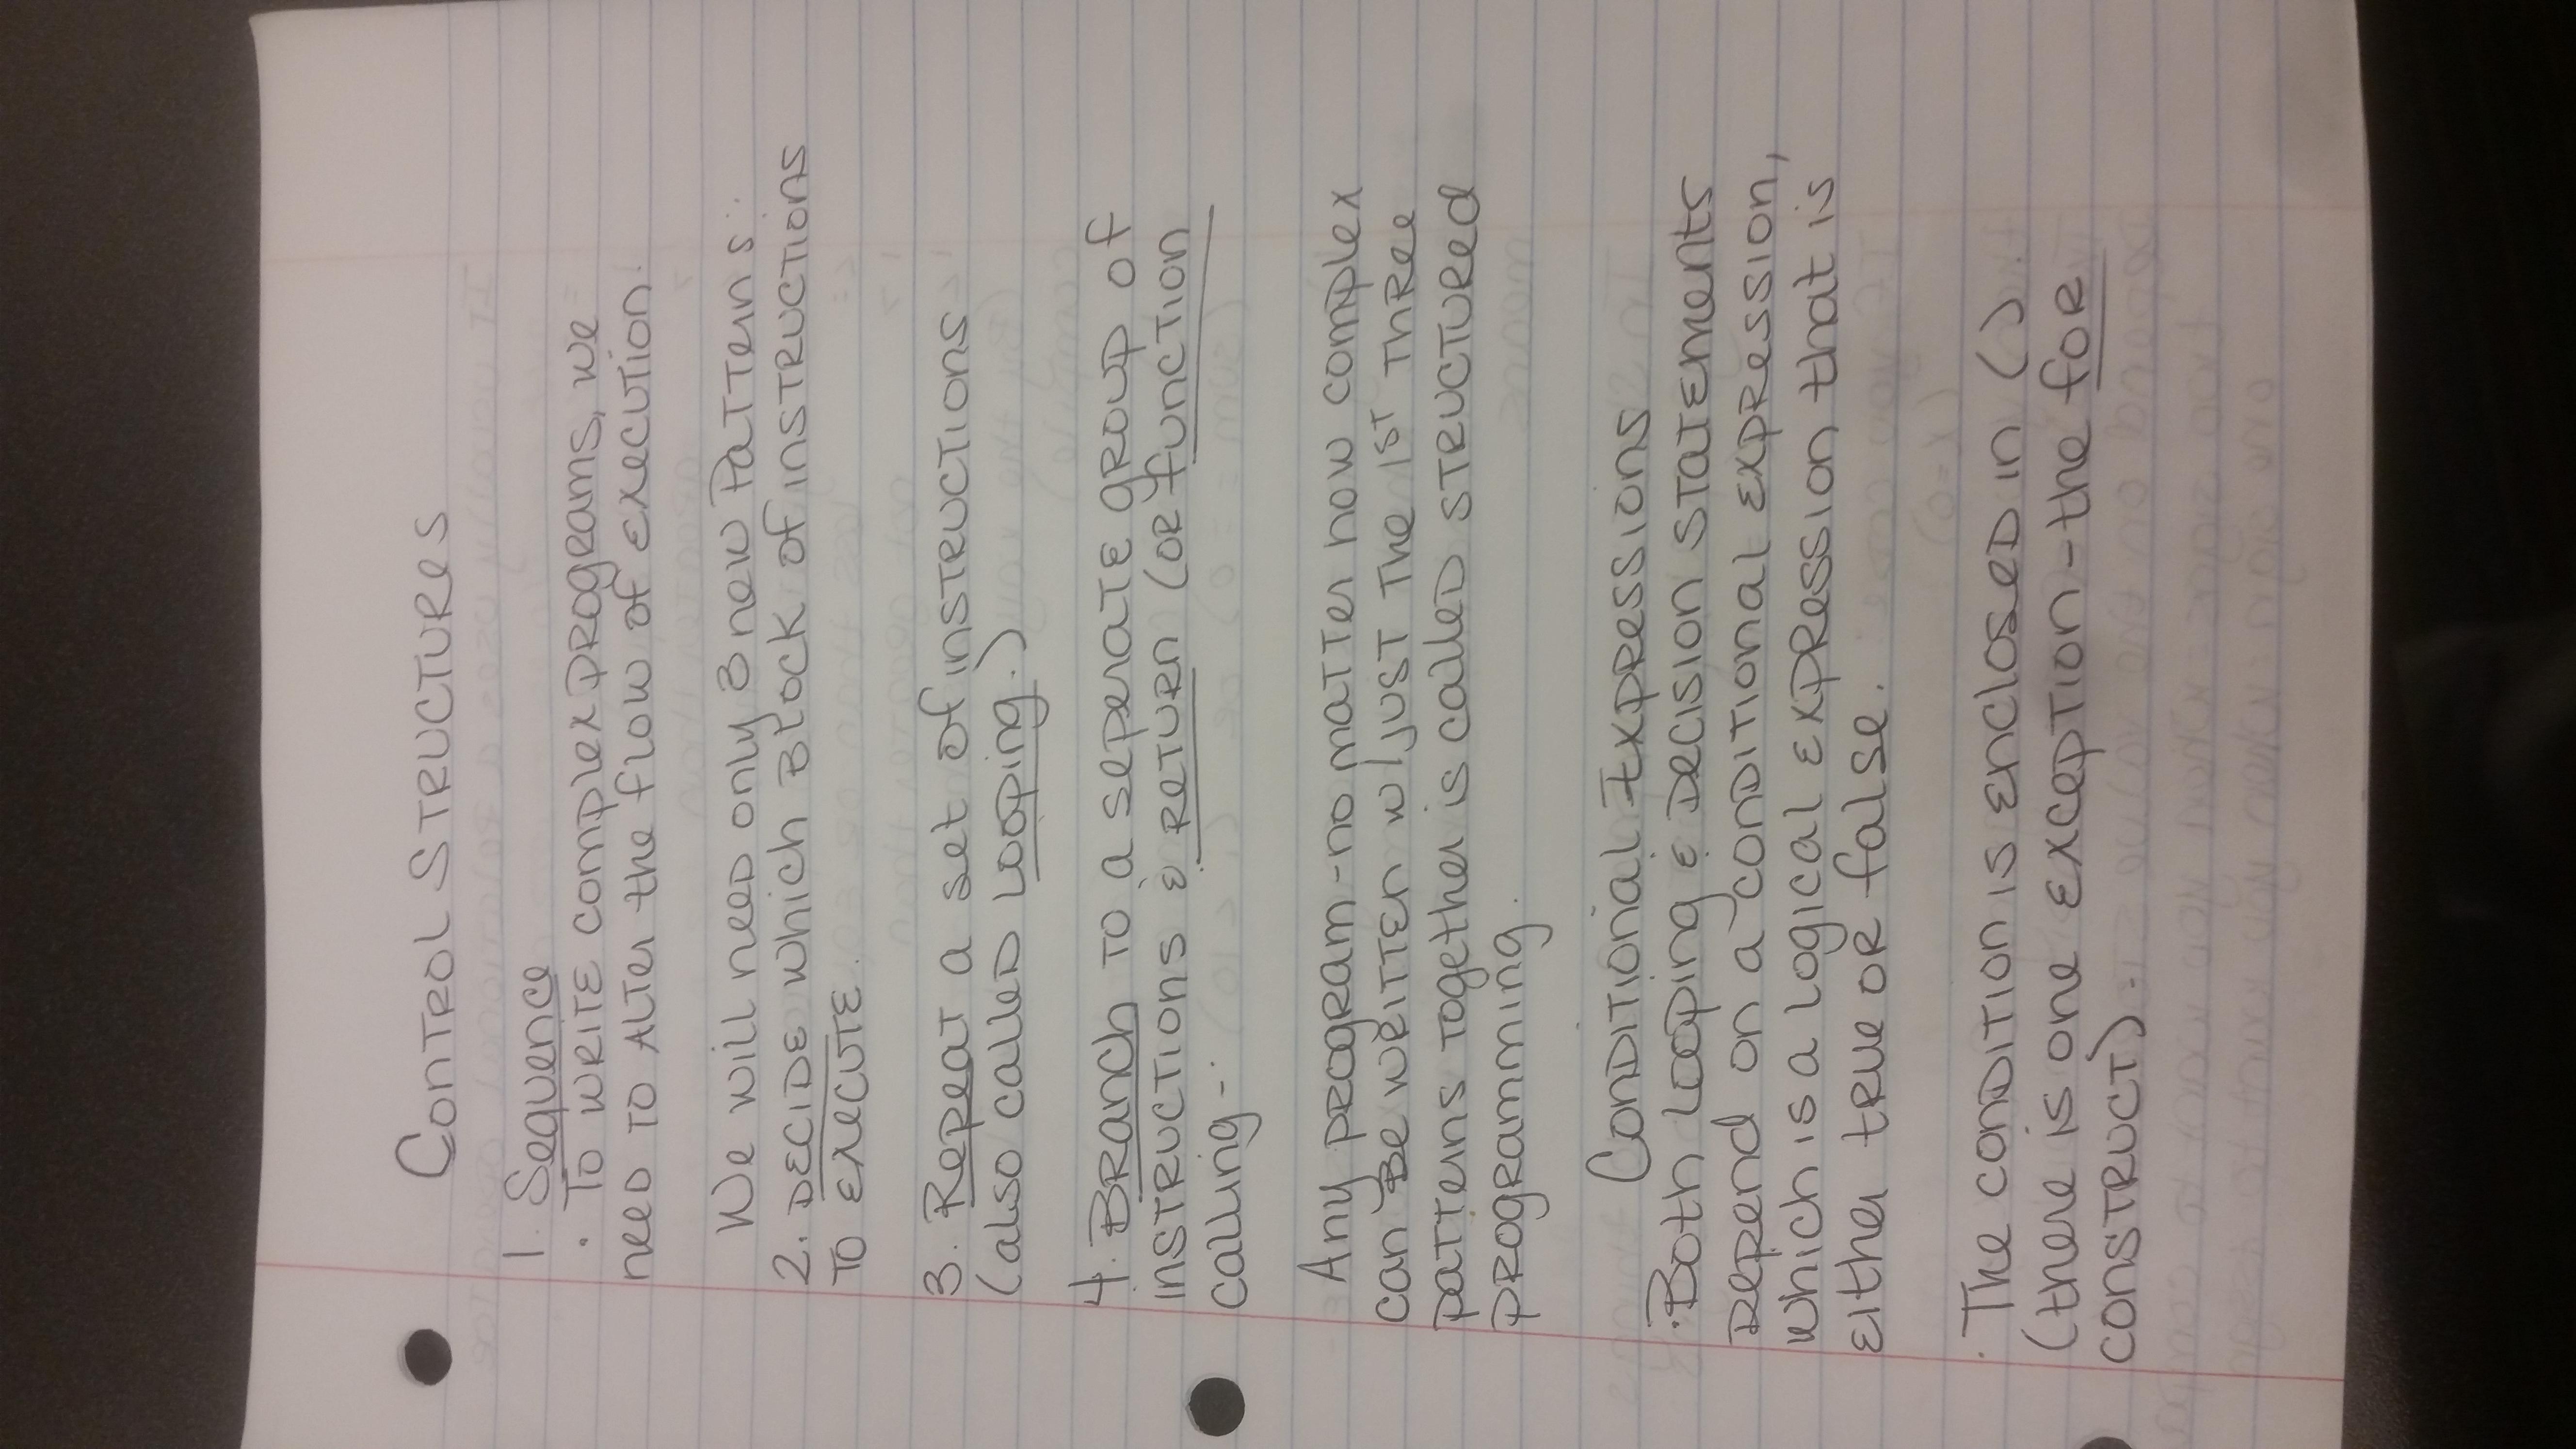 Control Structures
1. Sequence
· To write complex programs, we
need to alter the flow of execution.
We will need only 3 new patterns:
2. Decide which block of instructions
to execute.
3. Repeat a set of instructions
(also called looping.)
4. Branch to a seperate group of
instructions & return (or function
calling.
Any program - no matter how complex
can be written w/ just the 1st three
patterns together is called structured
programming.
Conditional Expressions
· Both looping & decision statements
depend on a conditional expression,
which is a logical expression that is
either true or false.
· The condition is enclosed in ()
(there is one exception - the for
construct).